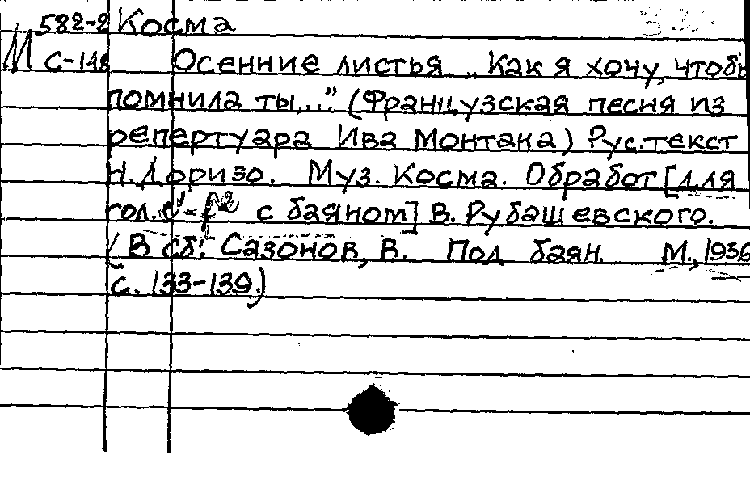 М 582-2 Косма
С-148 Осенние листья „Как я хочу, чтобы
помнила ты,..." (Французская песня из
репертуара Ива Монтана) Рус. текст
Н. Доризо. Муз. Косма. Обработ [для
гол. с баяном] В. Рубашевского.
(В сб: Сазонов, В. Под баян. М., 1956
с. 133-139)